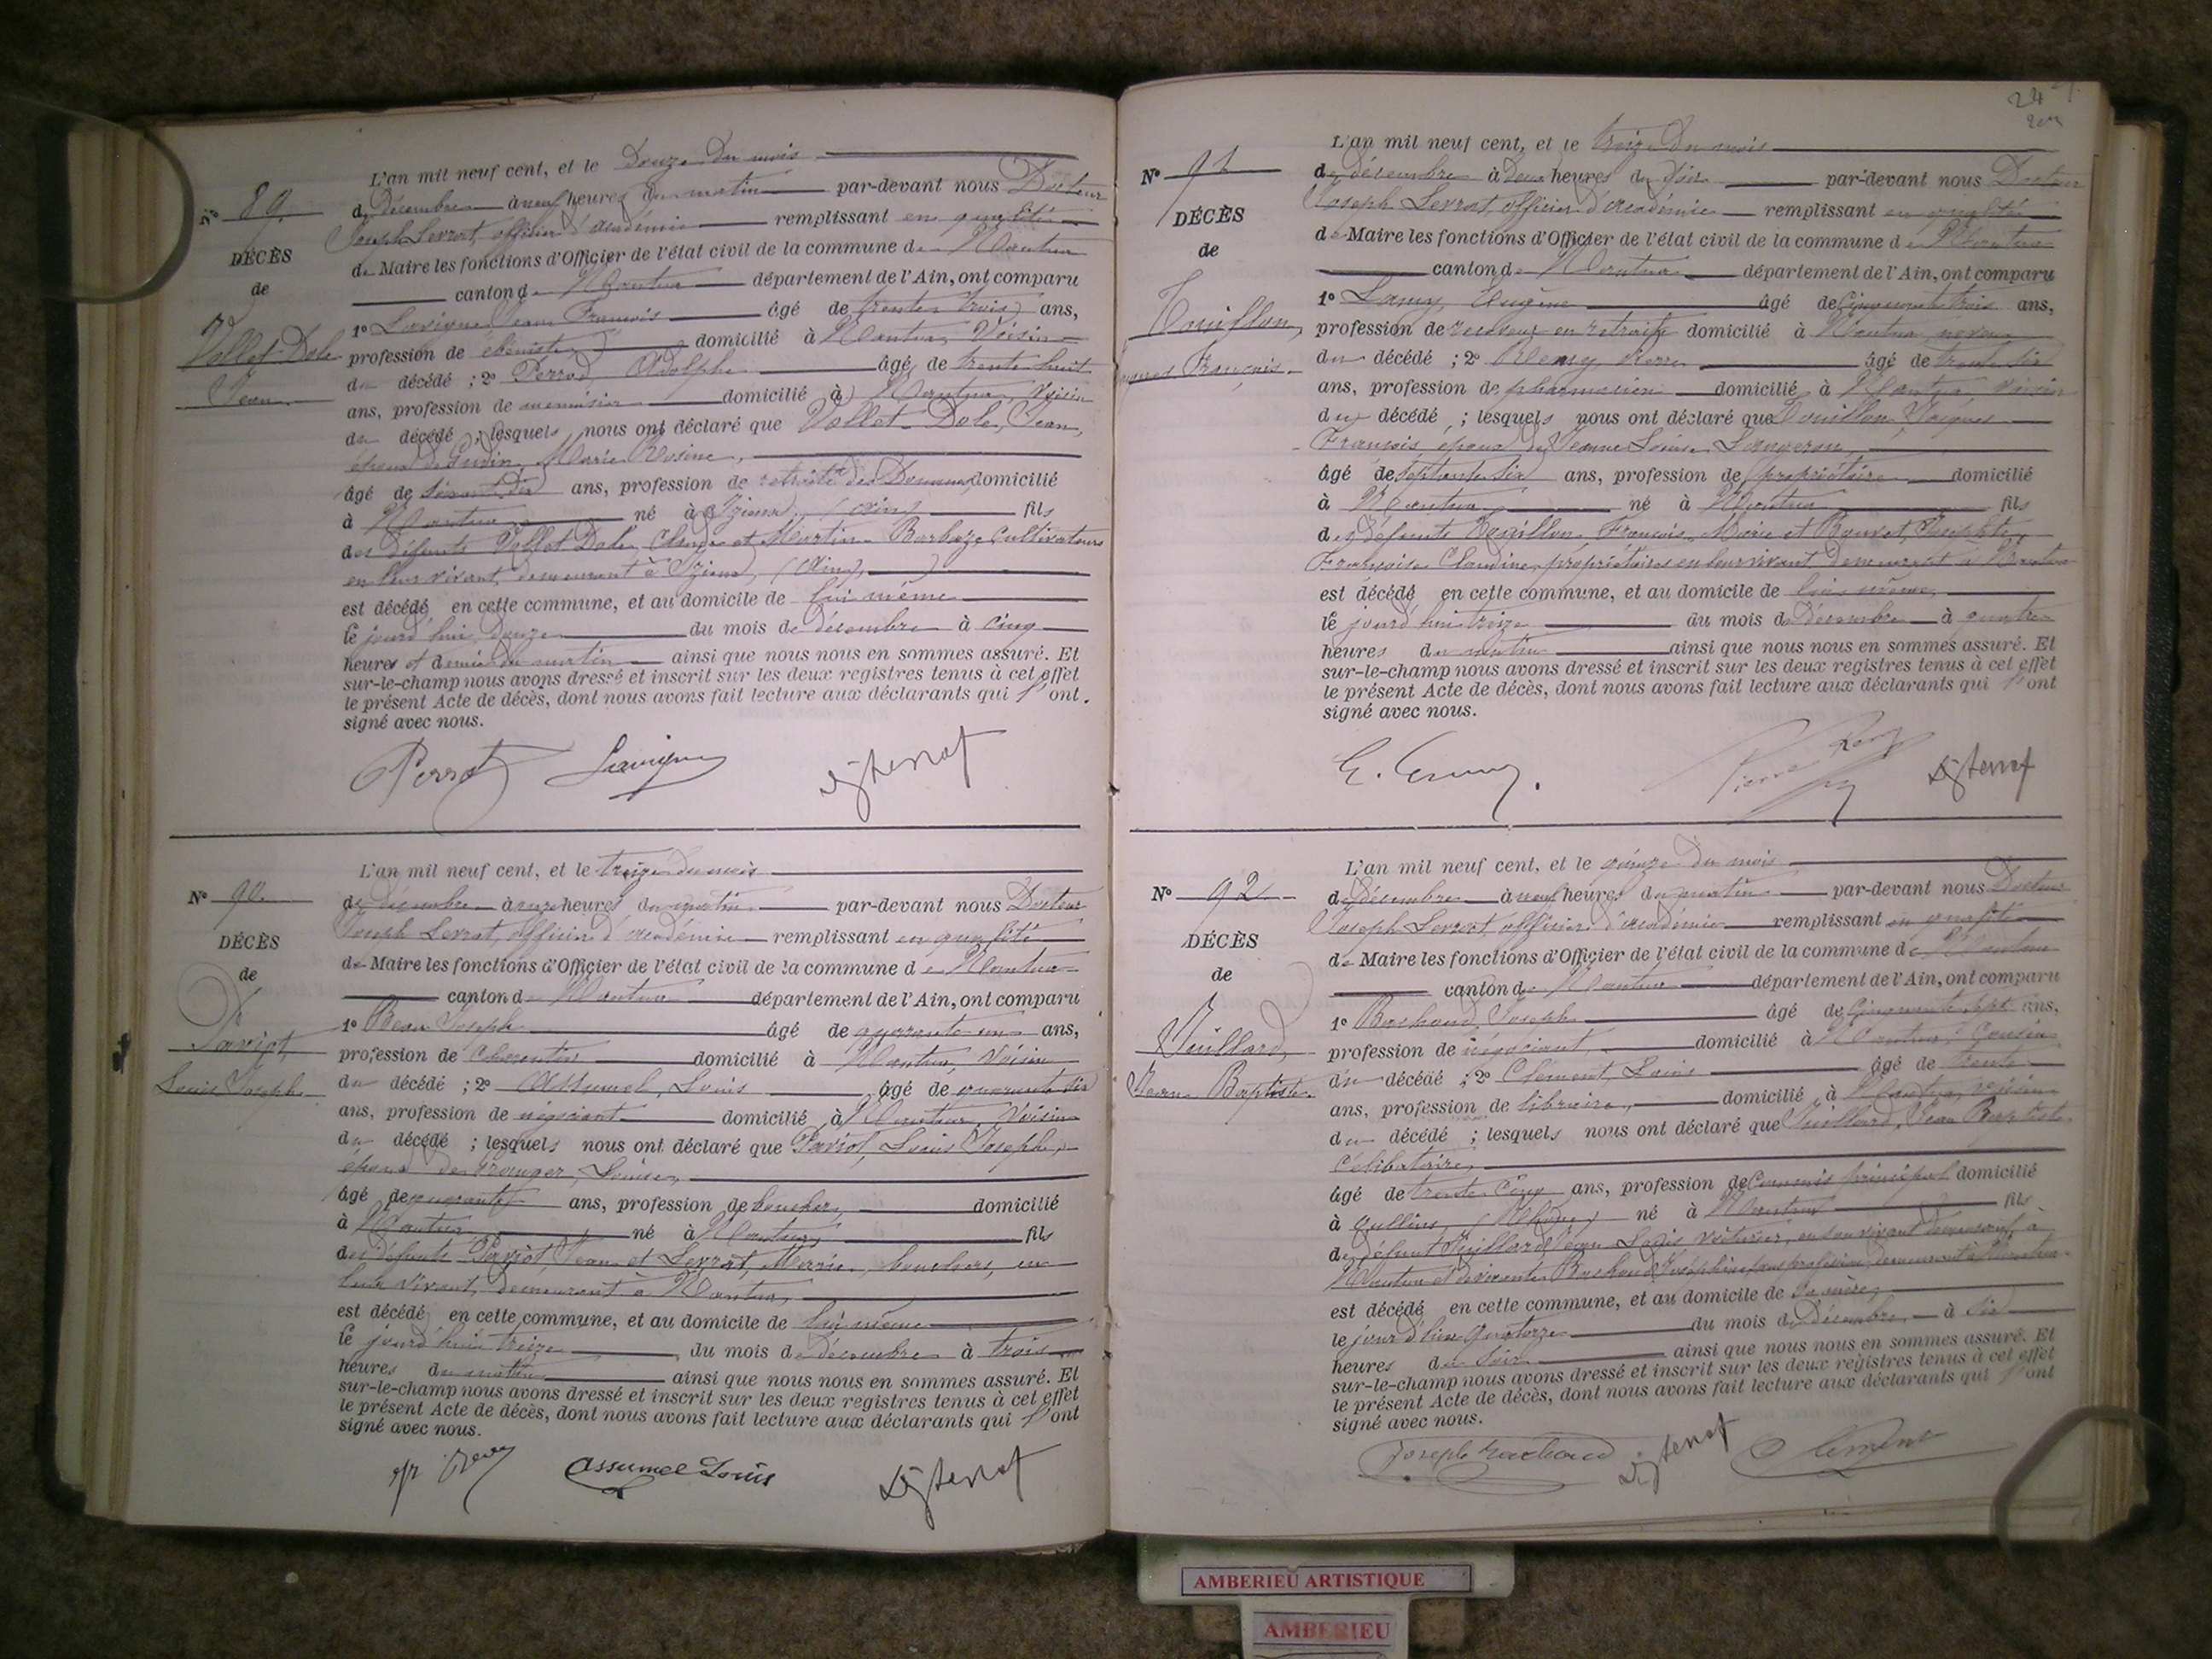 N° 89
DÉCÈS
de
Vollet-Dole
Jean
L'an mil neuf cent, et le Douze du mois
de décembre à neuf heures du matin par-devant nous Docteur
Joseph Levrat, officier d'académie remplissant en qualité
de Maire les fonctions d'Officier de l'état civil de la commune de Nantua
canton de Nantua département de l'Ain, ont comparu
1° Lavigne Jean François âgé de trente trois ans,
profession de ébéniste domicilié à Nantua Voisin
du décédé ; 2° Perrod Adolphe âgé de trente huit
ans, profession de menuisier domicilié à Nantua, Voisin
du décédé ; lesquels nous ont déclaré que Vollet-Dole, Jean,
époux de Gudin, Marie Rosine,
âgé de ans, profession de retraité des Douanes domicilié
à Nantua né à Izieux (Ain) fils
des défunts Vollet Dole, Claude et Martin-Barbaze, Cultivateurs
en leur vivant, demeurant à Izieux, (Ain),
est décédé en cette commune, et au domicile de lui même
le jourd'hui douze du mois de décembre à cinq
heures et demie du matin ainsi que nous nous en sommes assuré. Et
sur-le-champ nous avons dressé et inscrit sur les deux registres tenus à cet effet
le présent Acte de décès, dont nous avons fait lecture aux déclarants qui l'ont
signé avec nous.
Perrod Lavigne
N° 90.
DÉCÈS
de
Paviot
Louis Joseph
L'an mil neuf cent, et le treize du mois
de décembre à onze heures du matin par-devant nous Docteur
Joseph Levrat, officier d'académie remplissant en qualité
de Maire les fonctions d'Officier de l'état civil de la commune de Nantua
canton de Nantua département de l'Ain, ont comparu
1° Beau Joseph âgé de quarante un ans,
profession de Charcutier domicilié à Nantua, Voisin
du décédé ; 2° Assumel, Louis âgé de quarante six
ans, profession de négociant domicilié à Nantua, Voisin
du décédé ; lesquels nous ont déclaré que Paviot, Louis Joseph,
époux de Louise,
âgé de quarante ans, profession de boucher, domicilié
à Nantua, né à Nantua, fils
des défunts Paviot, Jean et Levrat, Marie, bouchers, en
leur vivant, demeurant à Nantua,
est décédé en cette commune, et au domicile de lui même
le jourd'hui treize du mois de décembre à trois
heures du matin ainsi que nous nous en sommes assuré. Et
sur-le-champ nous avons dressé et inscrit sur les deux registres tenus à cet effet
le présent Acte de décès, dont nous avons fait lecture aux déclarants qui l'ont
signé avec nous.
Assumel Louis
24
N° 91
DÉCÈS
de
Touillon,
Jacques François
L'an mil neuf cent, et le treize du mois
de décembre à deux heures du soir par-devant nous Docteur
Joseph Levrat, officier d'académie remplissant en qualité
de Maire les fonctions d'Officier de l'état civil de la commune de Nantua
canton de Nantua département de l'Ain, ont comparu
1° Eugène âgé de cinquante trois ans,
profession de receveur en retraite domicilié à Nantua neveu
du décédé ; 2° Pierre âgé de trente six
ans, profession de pharmacien domicilié à Nantua voisin
du décédé ; lesquels nous ont déclaré que Touillon, Jacques
François époux de Jeanne Louise Langeron
âgé de septante six ans, profession de propriétaire domicilié
à Nantua né à Nantua fils
des défunts Touillon, François Marie et Josephte
Françoise Claudine, propriétaires en leur vivant demeurant à Nantua
est décédé en cette commune, et au domicile de lui même,
le jourd'hui treize du mois de décembre à quatre
heures du matin ainsi que nous nous en sommes assuré. Et
sur-le-champ nous avons dressé et inscrit sur les deux registres tenus à cet effet
le présent Acte de décès, dont nous avons fait lecture aux déclarants qui l'ont
signé avec nous.
N° 92
DÉCÈS
de
Vuillard,
Jean Baptiste
L'an mil neuf cent, et le quinze du mois
de décembre à neuf heures du matin par-devant nous Docteur
Joseph Levrat officier d'académie remplissant en qualité
de Maire les fonctions d'Officier de l'état civil de la commune de Nantua
canton de Nantua département de l'Ain, ont comparu
1° Bachoud, Joseph âgé de cinquante sept ans,
profession de négociant, domicilié à Nantua, Cousin
du décédé ; 2° Clement, Louis âgé de trente
ans, profession de libraire, domicilié à Nantua, voisin
du décédé ; lesquels nous ont déclaré que Vuillard, Jean Baptiste
Célibataire,
âgé de trente cinq ans, profession de Commis principal domicilié
à Oullins, (Rhône) né à Nantua fils
de défunt Vuillard Jean Louis voiturier, en son vivant demeurant à
Nantua et de vivante Bachoud Joséphine sans profession, demeurant à Nantua
est décédé en cette commune, et au domicile de sa mère,
le jourd'hier quatorze du mois de décembre à six
heures du soir ainsi que nous nous en sommes assuré. Et
sur-le-champ nous avons dressé et inscrit sur les deux registres tenus à cet effet
le présent Acte de décès, dont nous avons fait lecture aux déclarants qui l'ont
signé avec nous.
Joseph Bachoud Clement
AMBERIEU ARTISTIQUE
AMBERIEU